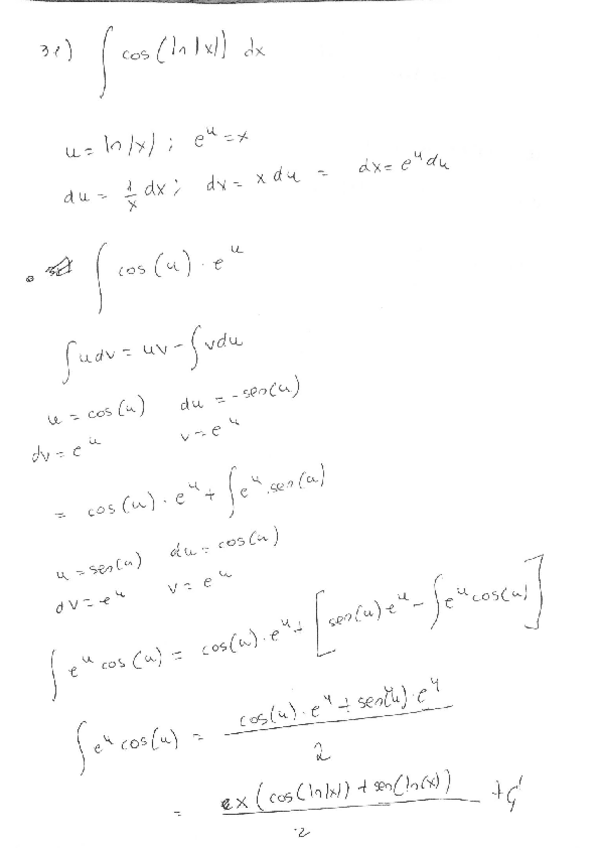 31) ∫ cos(ln|x|) dx
u = ln|x| ; e^u = x
du = 1/x dx ; dx = x du = dx = e^u du
∫ cos(u) · e^u
∫ u dv = uv - ∫ v du
u = cos(u) du = -sen(u)
dv = e^u v = e^u
= cos(u) · e^u + ∫ e^u . sen(u)
u = sen(u) du = cos(u)
dv = e^u v = e^u
∫ e^u cos(u) = cos(u) · e^u + [sen(u) e^u - ∫ e^u cos(u)]
∫ e^u cos(u) = cos(u) · e^u + sen(u) · e^u / 2
= x (cos(ln|x|) + sen(ln(x)) / 2 + C